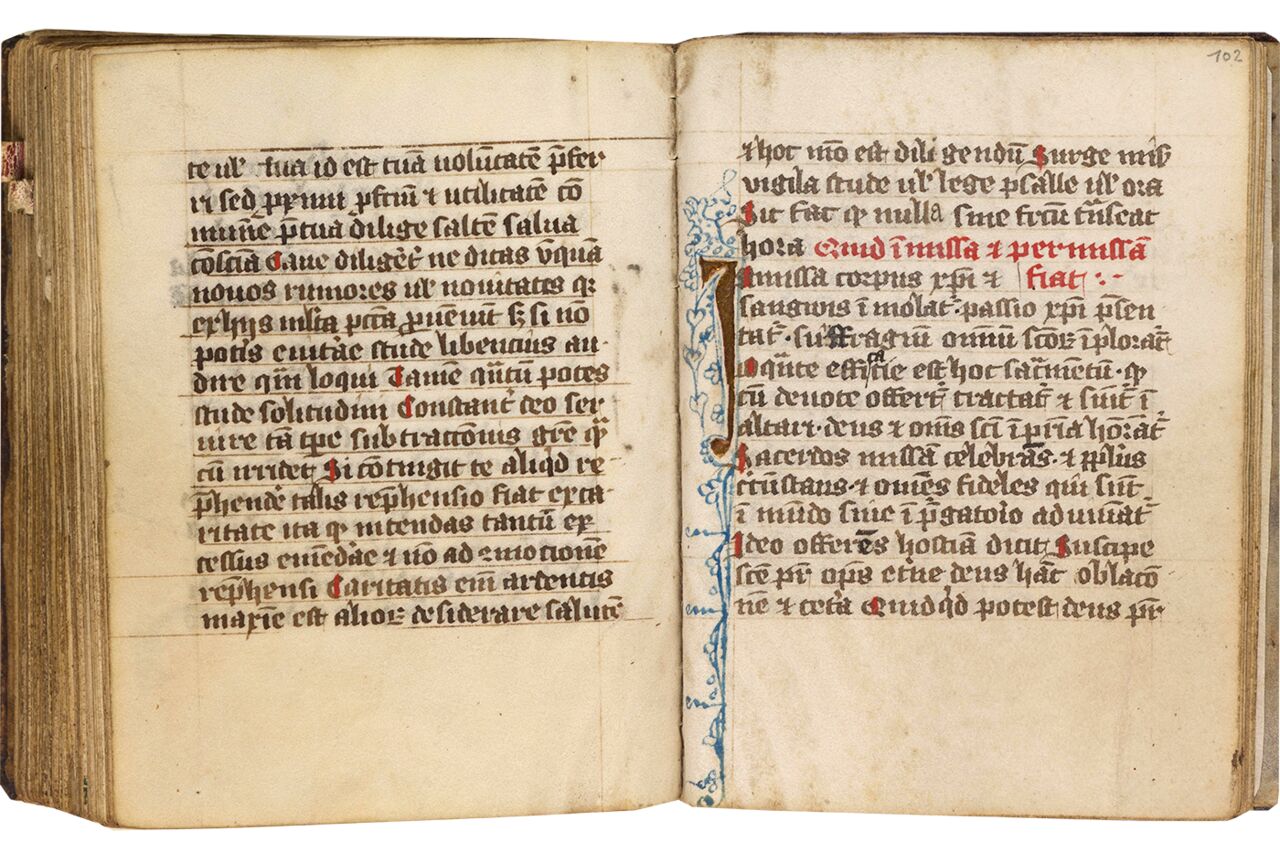 te ul' tua id est tuā uolūtatē p̄fer
ri sed p̱ximi p̱fctū ⁊ utilitatē cō
munē p̄ tua dilige saltē salua
cōsciā Caue diligēt' ne dicas vn̄quā
nouos rumores ul' nouitates qꝛ
ex hijs mlta pctā ꝓueniūt sꝫ si nō
potis euitāe stude libencius au-
dire qm̄ loqui Tamē qntū potes
stude solitudini Constant' deo ser
uire tā tpe subtractōnis grē qm̄
cū irridet' Si cōtingit te aliqd re
p̄hendē talis rep̄hensio fiat ex ca
ritate ita qp̱ intendas tantū ex
cessus emēdāe ⁊ nō ad emotionē
rep̄hensi Caritatis em̄ ardentis
maxīe est alioꝝ desiderare salutē
102
⁊ hoc mō est diligendū Surge mis
vigila stude ul' lege psalle ul' ora
Sit fac qp̱ nulla sine frctū trāseat
hora Quid ī missa ⁊ per missā
In missa corpus xp̄i ⁊ fiat :·
sanguis ī molat'· passio xp̄i p̄sen
tat'· suffragiū omniū scōꝝ īplorat'
efficacie est hoc sac̄mentū· qp̱
cū deuote offert' tractat' ⁊ sūit' ī
altari· deus ⁊ oms̄ scī ī p̄ria hōrāt'
Sacerdos missā celebrās· ⁊ pp̱lus
circūstans· ⁊ omnēs fideles qui sūt
ī mūdo siue ī p̱gatorio adiuuāt'
Ideo offerēs hostiā dicit Suscipe
scē pr̄ op̄s et'ne deus hāc oblacō
nē ⁊ cetā Quidqd potest deus pr̄